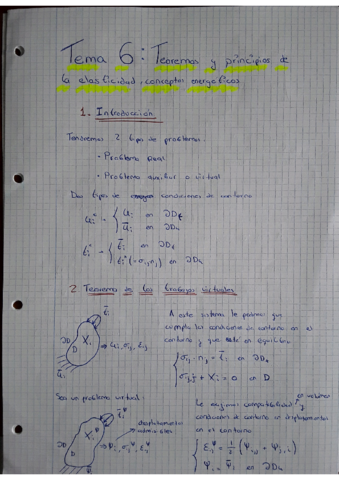 Tema 6: Teoremas y principios de
la elasticidad, conceptos energeticos
1. Introducción
Tendremos 2 tipo de problema:
· Problema real
· Problema auxiliar o virtual
Dos tipos de condiciones de contorno
2 Teorema de los trabajos virtuales
A este sistema le pedimos que
cumpla las condiciones de contorno en el
contorno y que esté en equilibrio
σij · nj = t̄i en ∂Dt
σij,j + Xi = 0 en D
Sea un problema virtual:
desplazamientos
admisibles
Le exigimos compatibilidad en volumen y
condiciones de contorno en desplazamientos
en el contorno